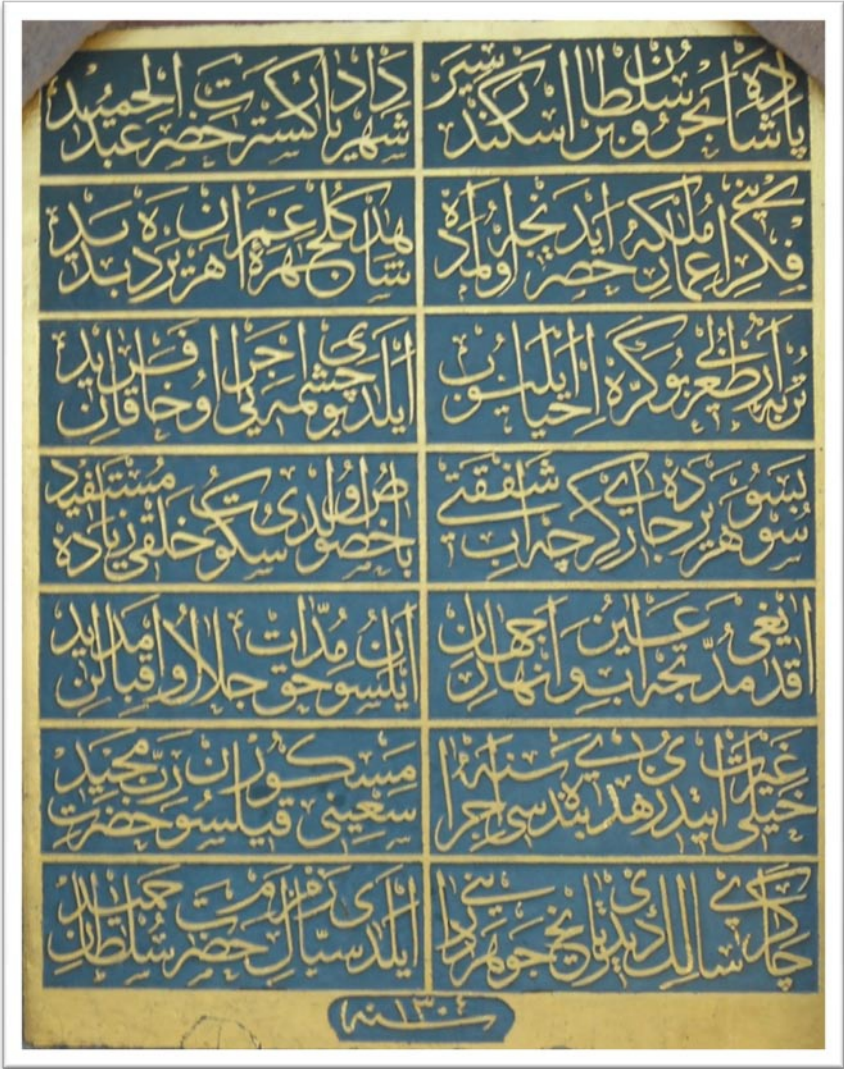 پادشاه بحر و بر سلطان اسکندر سیر
شهریار داد کستر حضرت عبد الحمید
فکرینی اعمار ملکه حصر ایدنجه اولمده
شاهد کلچهرهٔ عمران هر یرده بدید
تربهٔ ارطغرلی بو کره احیا ایلیوب
ایلدی بو چشمه یی اجرا او خاقان فرید
سو بسو هر یرده جاری کرچه آب شفقتی
باخصوص اولدی سکوت خلقی زیاده مستفید
اقدیغی مدتجه آب عین و انهار جهان
ایلسون حق مدت اجلال و اقبالن مدید
خیلی غیرت ایتدی بنده سی اجراسنه
سعینی مشکور قیلسون حضرت رب مجید
چاکری سالک دیدی تاریخ جوهردارینی
ایلدی سیال زمزم حضرت سلطان حمید
سنه ١٣٠٤